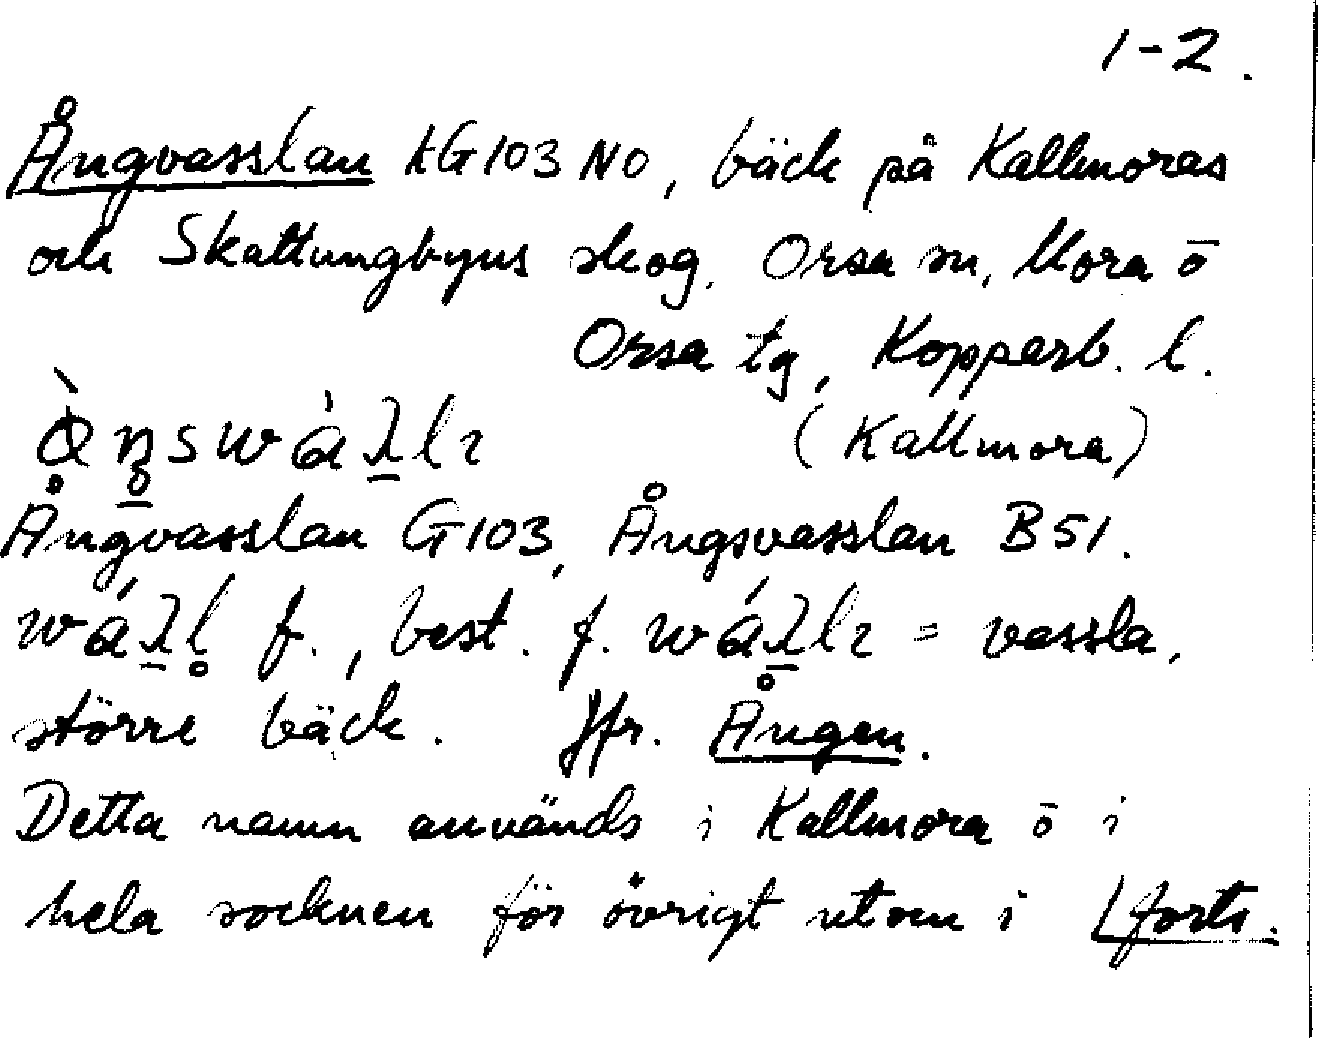 1-2.
Ångvasslan kG103 NO, bäck på Kallmoras
och Skattungbyns skog. Orsa sn, Mora o
Orsa tg, Kopparb. l.
(Kallmora)
Ångvasslan G103, Ångsvasslan B51.
f., best. f. = vassla,
större bäck. Jfr. Ången.
Detta namn används i Kallmora o i
hela socknen för övrigt utom i forts.